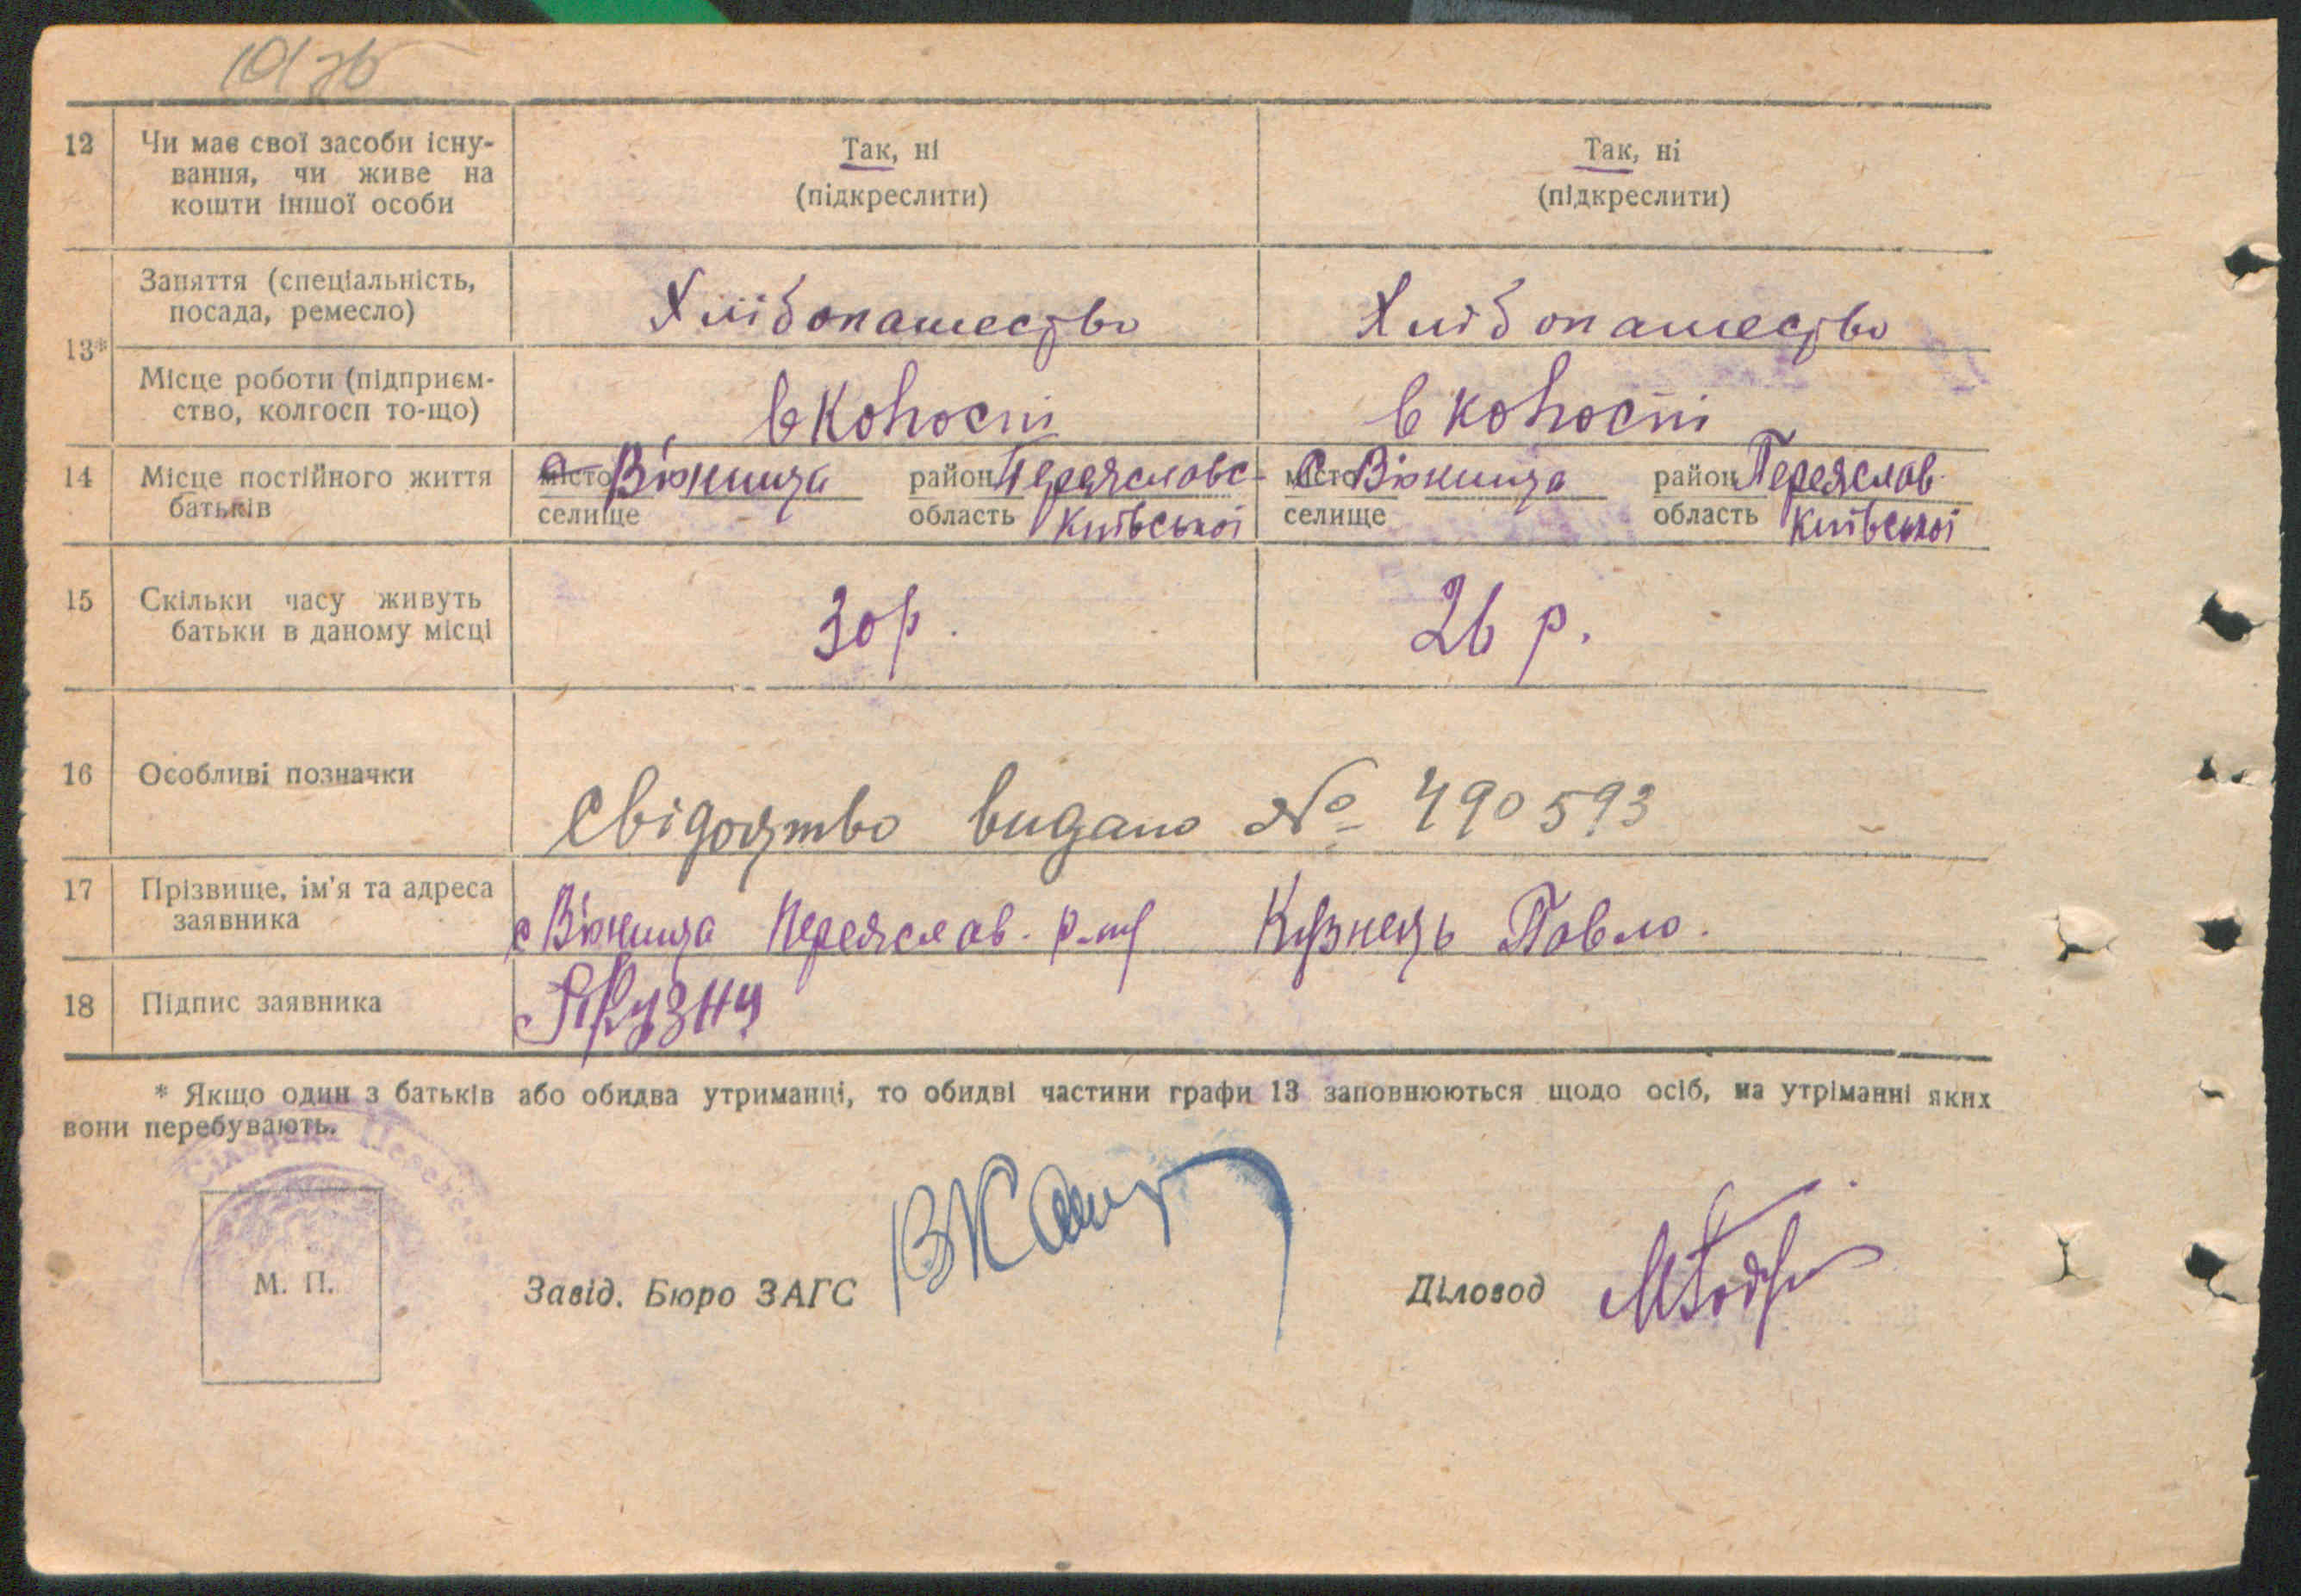 12 Чи має свої засоби існу- Так, ні Так, ні
вання, чи живе на (підкреслити) (підкреслити)
кошти іншої особи
13* Заняття (спеціальність, Хлібопашество Хлібопашество
посада, ремесло)
Місце роботи (підприєм- в колгоспі в колгоспі
ство, колгосп то-що)
14 Місце постійного життя місто с Вюнища район Переяславс- місто с Вюнища район Переяслав-
батьків селище область Київської селище область Київської
15 Скільки часу живуть 30 р. 26 р.
батьки в даному місці
16 Особливі позначки свідоцтво видано № 490593
17 Прізвище, ім'я та адреса с Вюнища Переяслав. р-ну Кузнець Павло.
заявника
18 Підпис заявника ПКузнц
* Якщо один з батьків або обидва утриманці, то обидві частини графи 13 заповнюються щодо осіб, на утріманні яких
вони перебувають.
Сільрада
М. П. Завід. Бюро ЗАГС Діловод